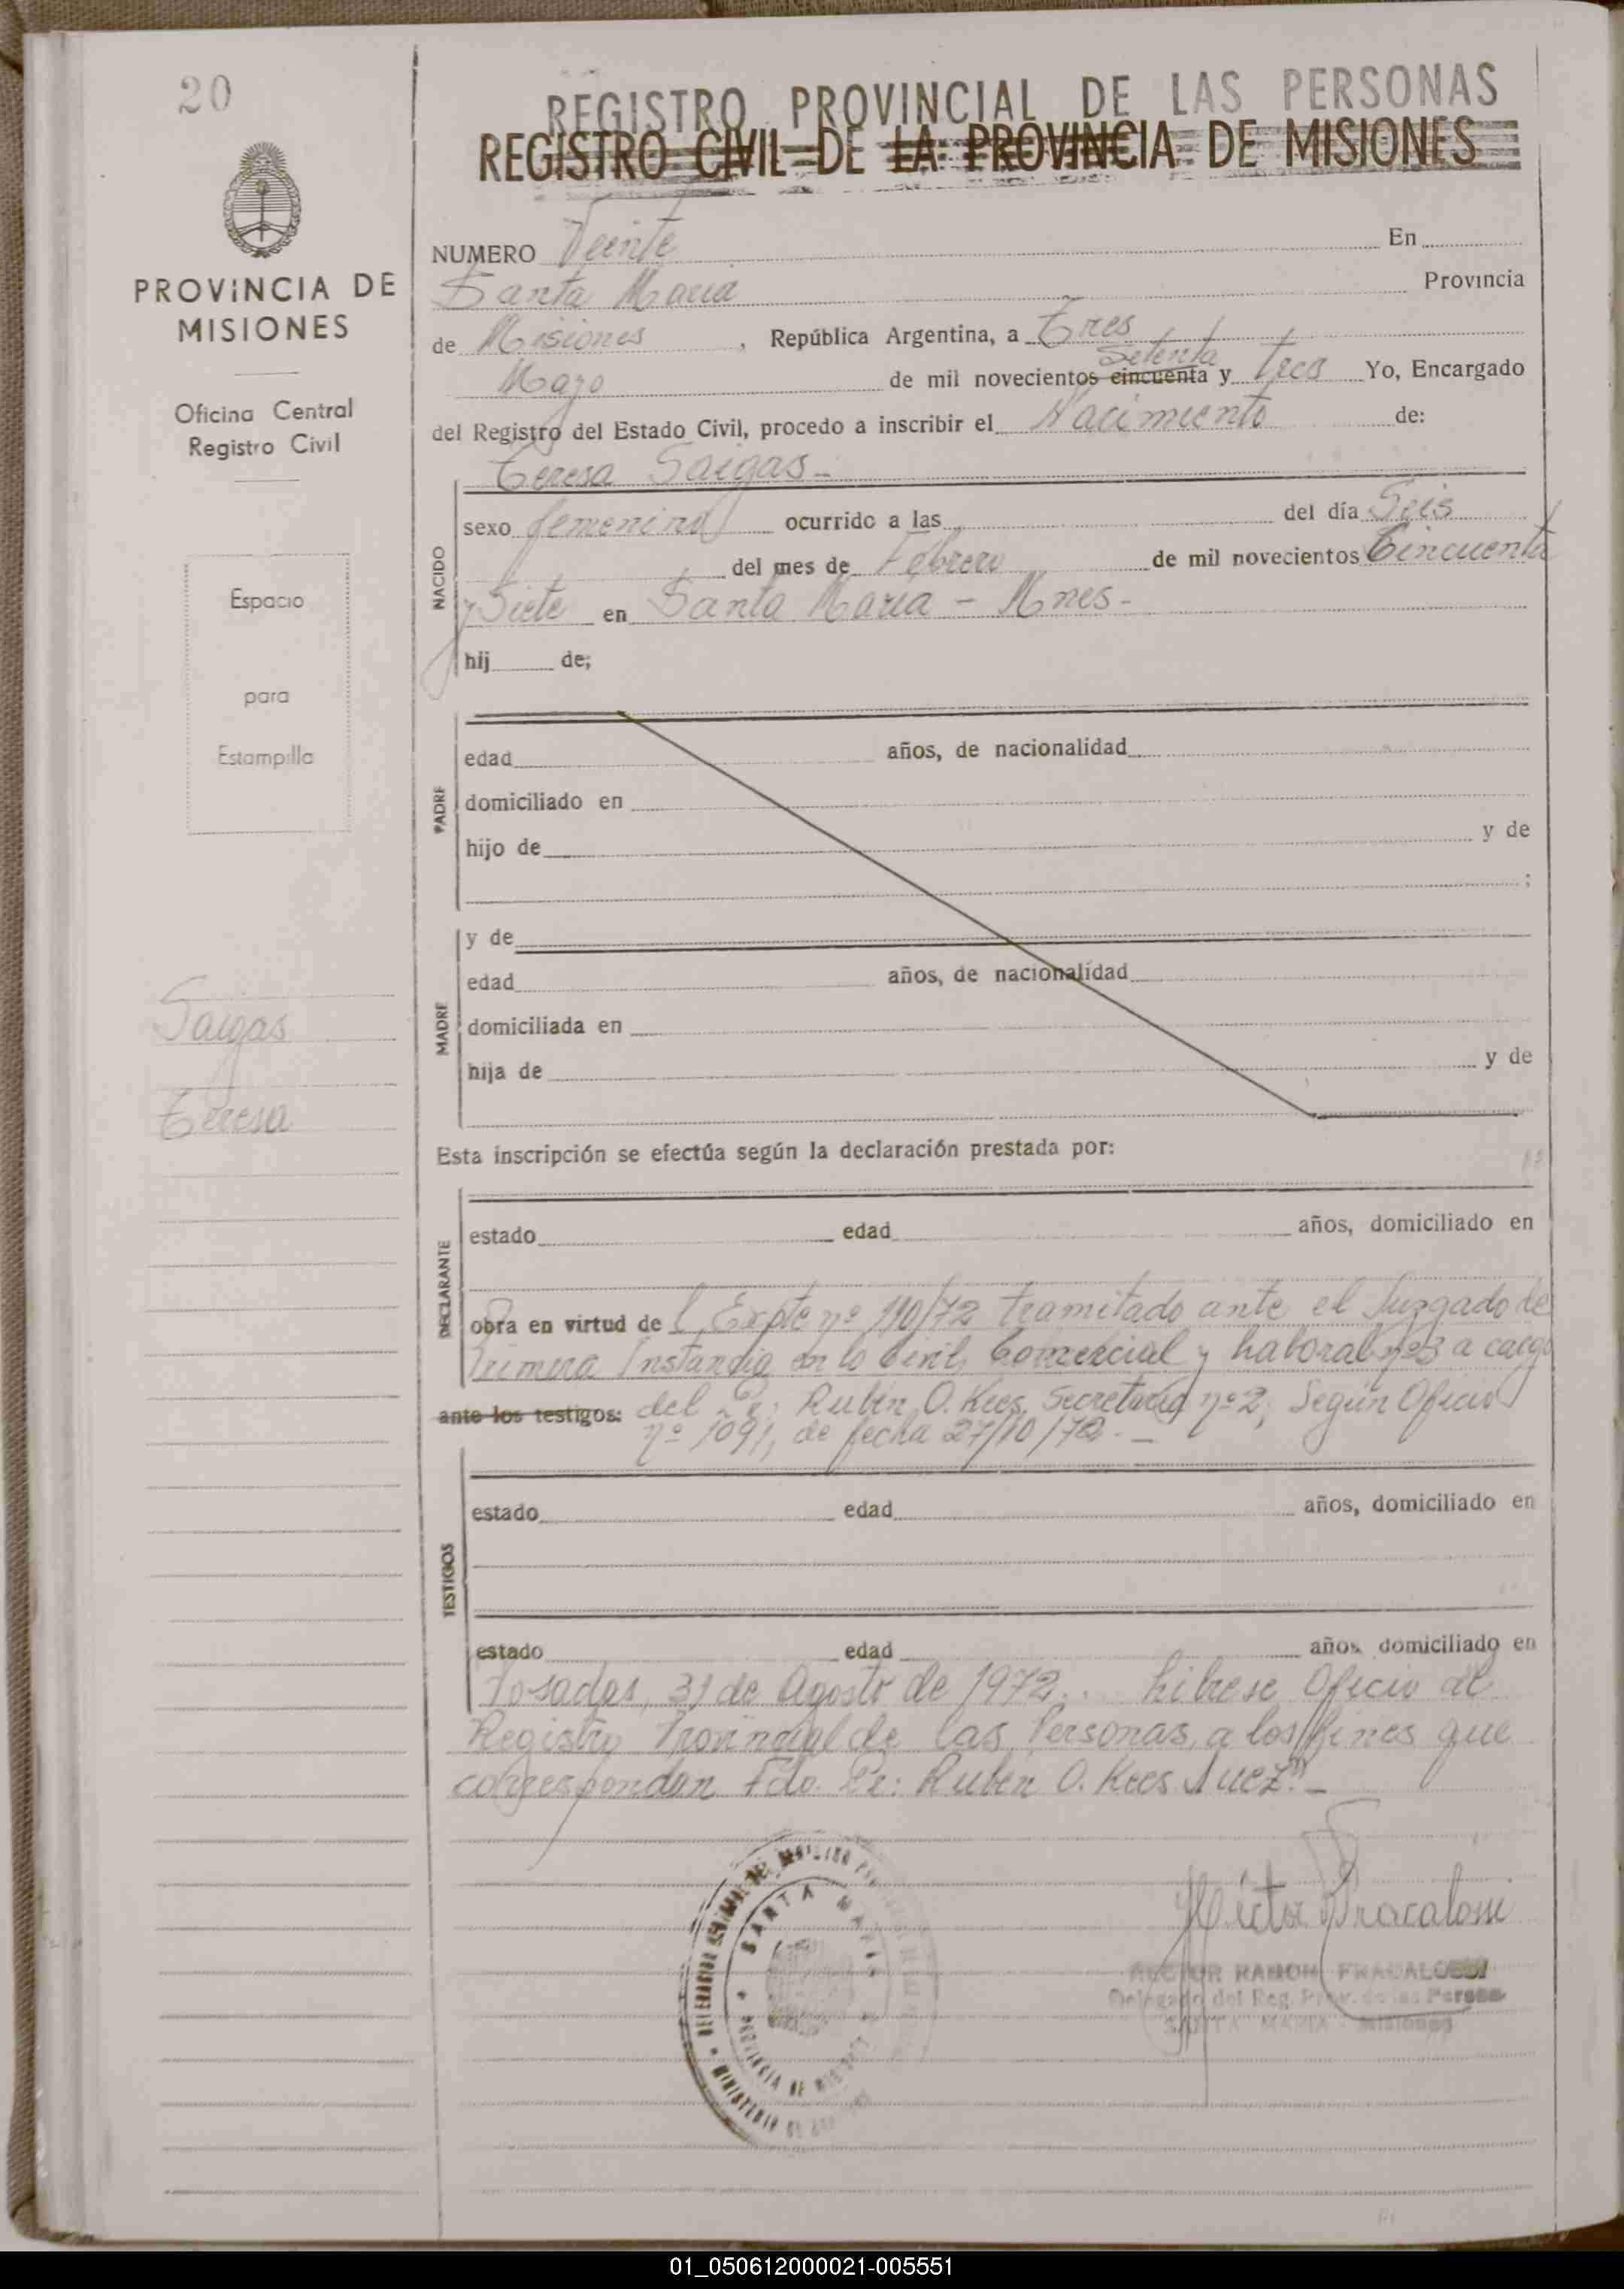 20
REGISTRO PROVINCIAL DE LAS PERSONAS
REGISTRO CIVIL DE LA PROVINCIA DE MISIONES
PROVINCIA DE
MISIONES
Oficina Central
Registro Civil
Espacio
para
Estampilla
Saigas
Teresa
NUMERO Veinte En
Santa Maria Provincia
de Misiones, República Argentina, a Tres
Setenta
Mayo de mil novecientos cincuenta y tres Yo, Encargado
del Registro del Estado Civil, procedo a inscribir el Nacimiento de:
Teresa Saigas -
NACIDO
sexo femenino ocurrido a las del día Seis
del mes de Febrero de mil novecientos Cincuenta
y Siete en Santa Maria - Mnes -
hij de;
PADRE
edad años, de nacionalidad
domiciliado en
hijo de y de
;
MADRE
y de
edad años, de nacionalidad
domiciliada en
hija de y de
Esta inscripción se efectúa según la declaración prestada por:
DECLARANTE
estado edad años, domiciliado en
obra en virtud de l Expte nº 110/72 tramitado ante el Juzgado de
Primera Instancia en lo Civil, Comercial y Laboral a cargo
ante los testigos: del Dr: Ruben O. Kees, Secretaria nº 2, Según Oficio
nº 1091, de fecha 27/10/72. -
TESTIGOS
estado edad años, domiciliado en
estado edad años domiciliado en
Posadas, 31 de Agosto de 1972.. Librese Oficio al
Registro Provincial de las Personas, a los fines que
correspondan Fdo. Dr: Ruben O. Kees Juez". -
SANTA MARIA
PROVINCIA DE MISIONES
MINISTERIO DE
Hector Fracalossi
HECTOR RAMON FRACALOSSI
Delegado del Reg. Prov. de las Personas
SANTA MARIA - Misiones
01_050612000021-005551